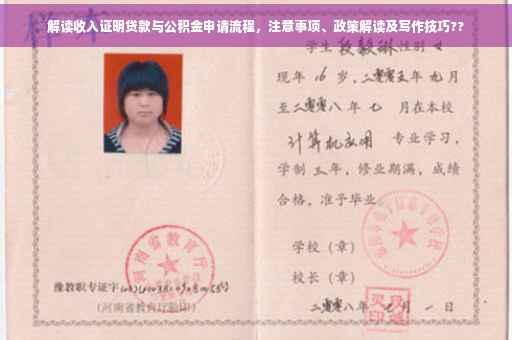 解读收入证明贷款与公积金申请流程，注意事项、政策解读及写作技巧??
学生 段毅琳 性别 女
现年 16 岁，二零零五年 九月
至二零零八年 七 月在本校
计算机应用 专业学习，
学制 三年，修业期满，成绩
合格，准予毕业
学校（章）
校长（章）
二零零八年 月 一 日
河南省教育厅
豫教职专证字
（河南省教育厅验印）